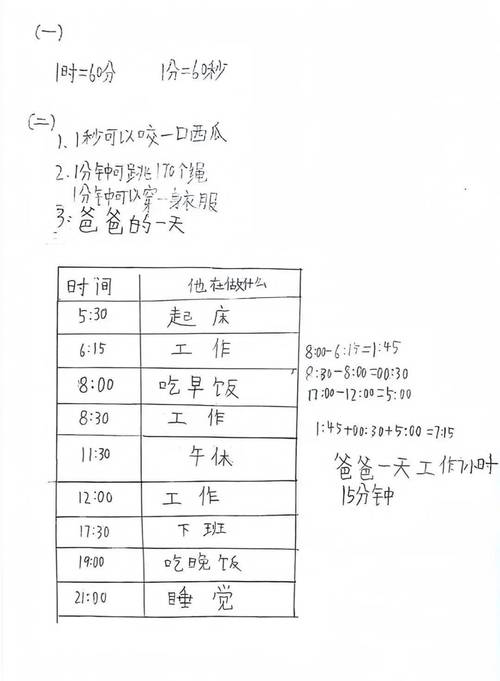 (一)
1时=60分 1分=60秒
(二)
1、1秒可以咬一口西瓜
2.1分钟可跳170个绳
1分钟可以穿一身衣服
3:爸爸的一天
时间 他在做什么
5:30 起床
6:15 工作
8:00 吃早饭
8:30 工作
11:30 午休
12:00 工作
17:30 下班
19:00 吃晚饭
21:00 睡觉
8:00-6:15=1:45
8:30-8:00=00:30
17:00-12:00=5:00
1:45+00:30+5:00=7:15
爸爸一天工作7小时
15分钟